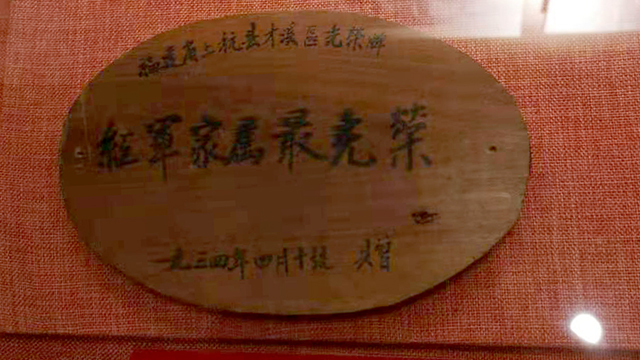 福建省上杭县才溪区光荣牌
红軍家属最光荣
九三四年四月十號 贈